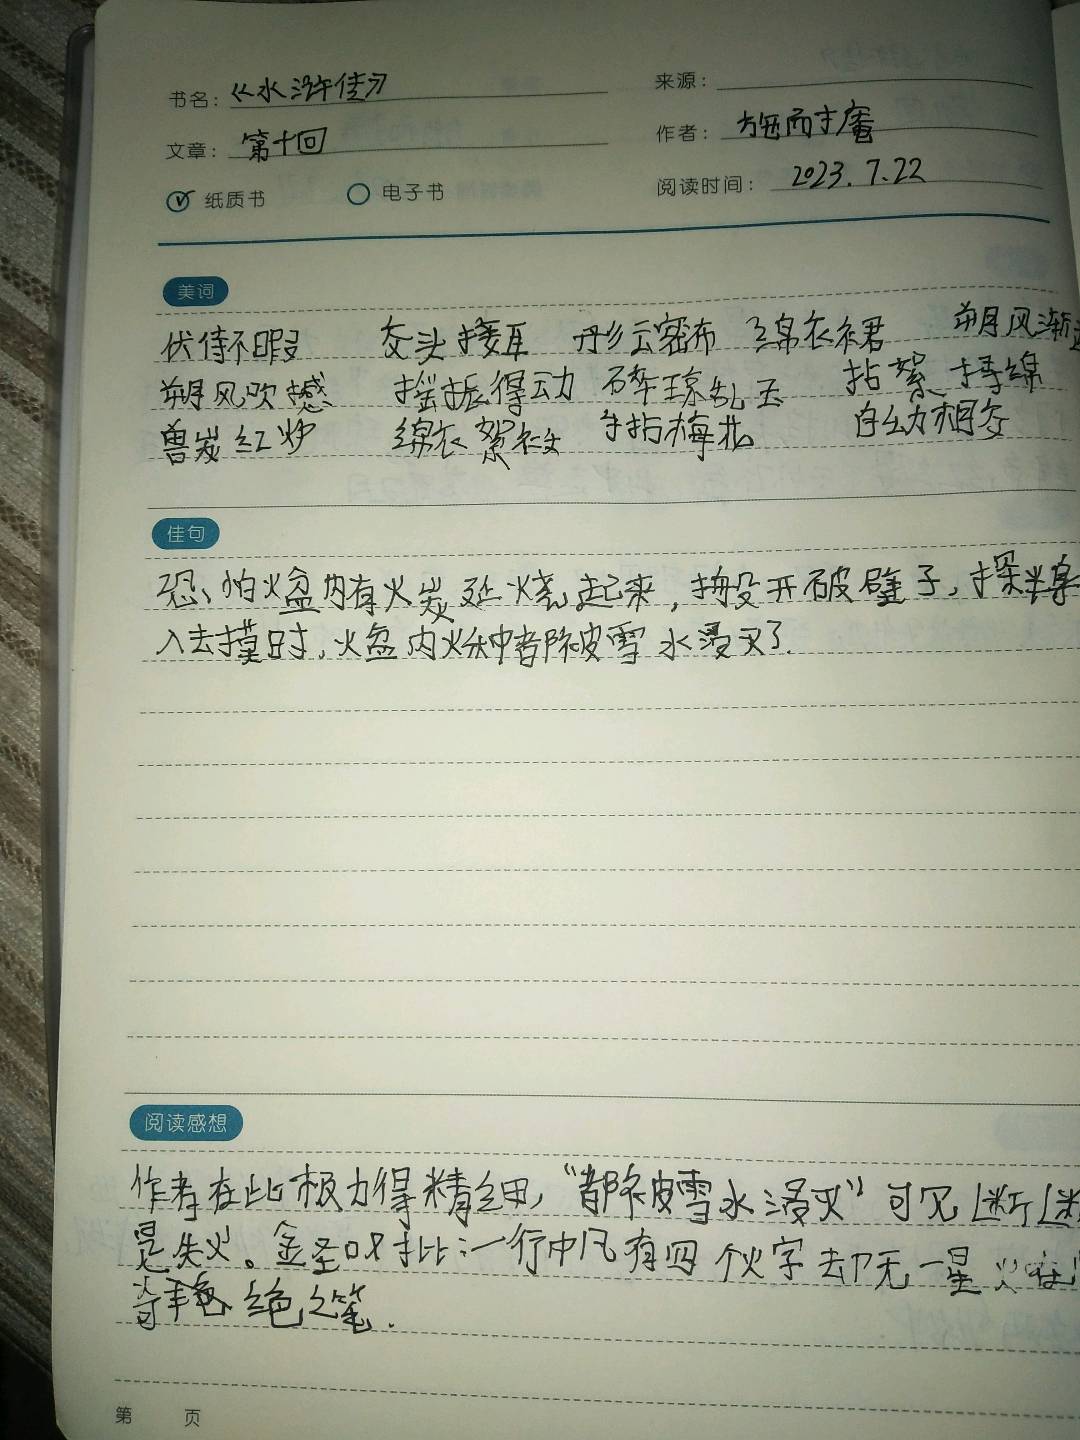 书名：《水浒传》 来源：
文章：第十回 作者：施耐庵
纸质书 电子书 阅读时间：2023.7.22
美词
伏侍不暇 交头接耳 彤云密布 绵衣裙 朔风渐
朔风吹撼 摇振得动 碎琼乱玉 拈絮挦绵
兽炭红炉 绵衣絮袄 手拈梅花 自幼相交
佳句
恐怕火盆内有火炭延烧起来，搬开破壁子，探半身
入去摸时，火盆内火种都被雪水浸灭了.
阅读感想
作者在此极力得精细，“都被雪水浸灭”可见断断
是失火。金圣叹批：一行中凡有四个火字却无一星火在
奇绝之笔.
第 页